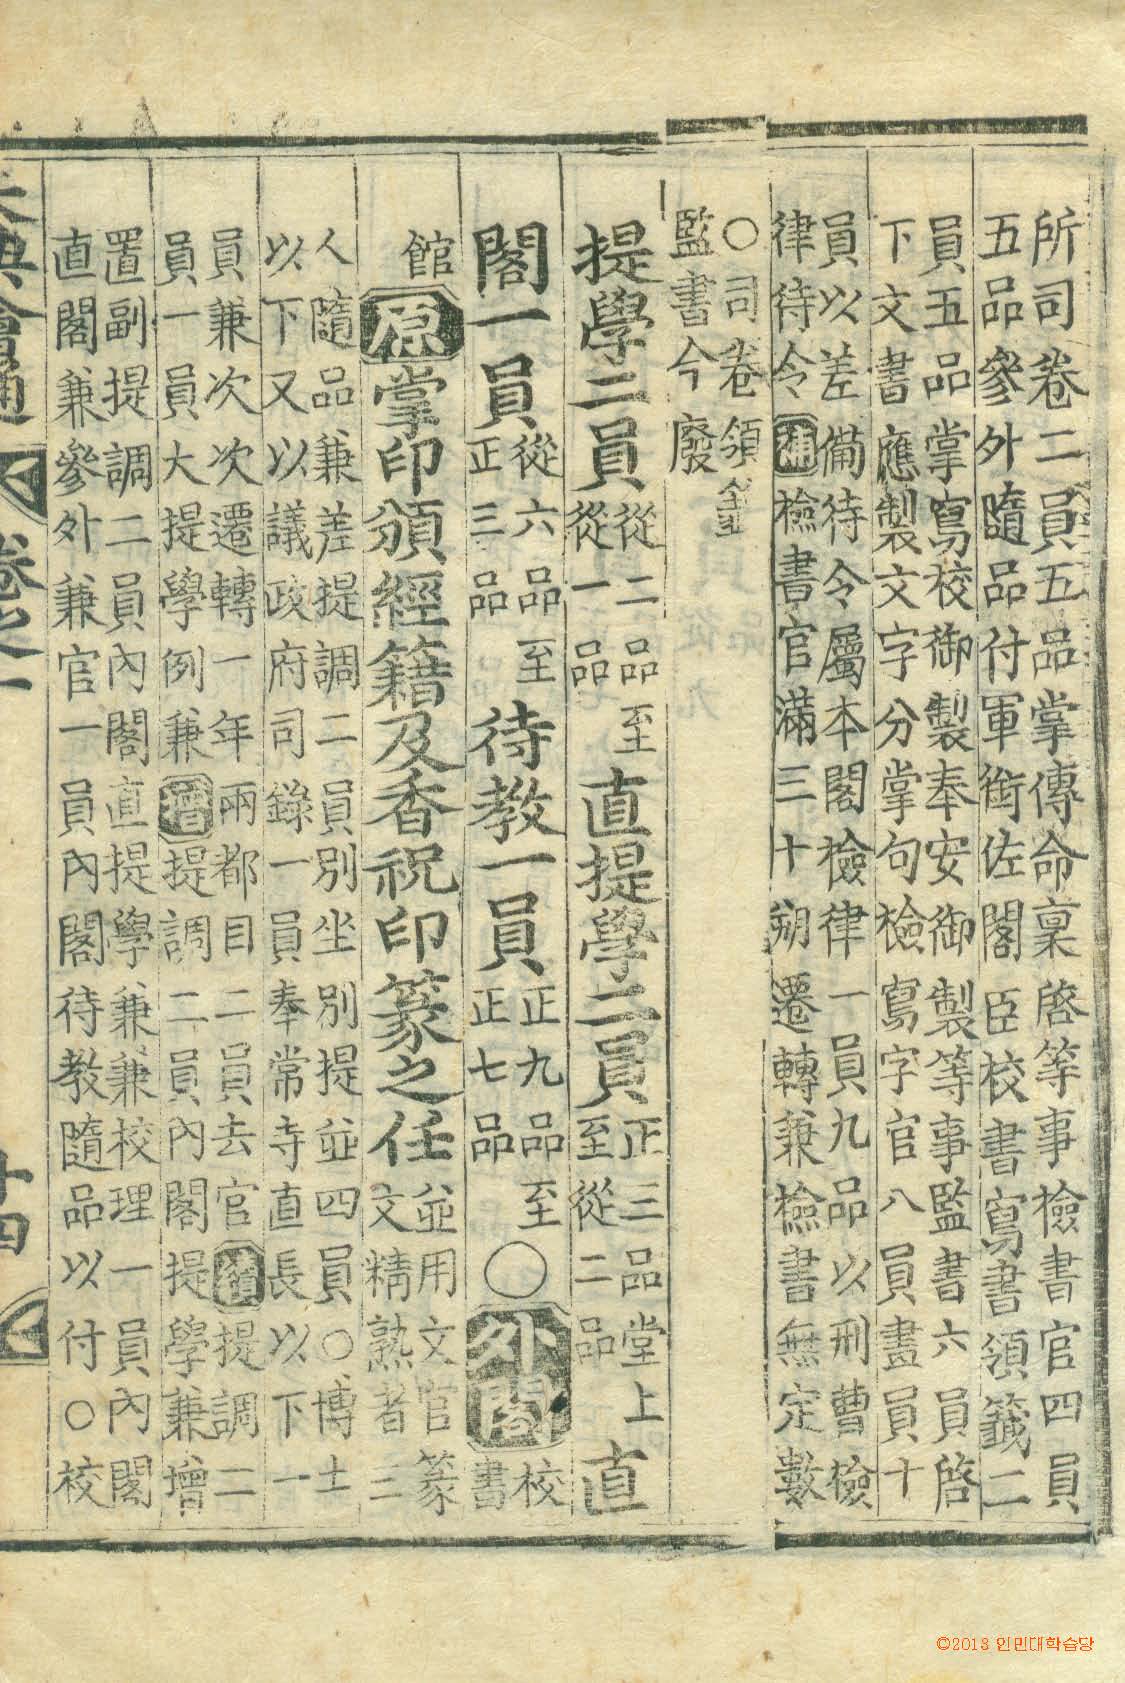 所司卷二員五品掌傳命稟啓等事檢書官四員
五品參外隨品付軍銜佐閣臣校書寫書領籤二
員五品掌寫校御製奉安御製等事監書六員啓
下文書應製文字分掌句檢寫字官八員畫員十
員以差備待令屬本閣檢律一員九品以刑曹檢
律待令補檢書官滿三十朔遷轉兼檢書無定數
○司卷領籤
監書今廢
提學二員從二品至
從一品直提學二員正三品堂上
至從二品直
閣一員從六品至
正三品待教一員正九品至
正七品○外閣校
書
館原掌印頒經籍及香祝印篆之任並用文官篆
文精熟者三
人隨品兼差提調二員別坐別提並四員○博士
以下又以議政府司錄一員奉常寺直長以下一
員兼次次遷轉一年兩都目二員去官續提調二
員一員大提學例兼增提調二員內閣提學兼增
置副提調二員內閣直提學兼兼校理一員內閣
直閣兼參外兼官一員內閣待教隨品以付○校
大典會通 卷之一 十四
©2013 인민대학습당